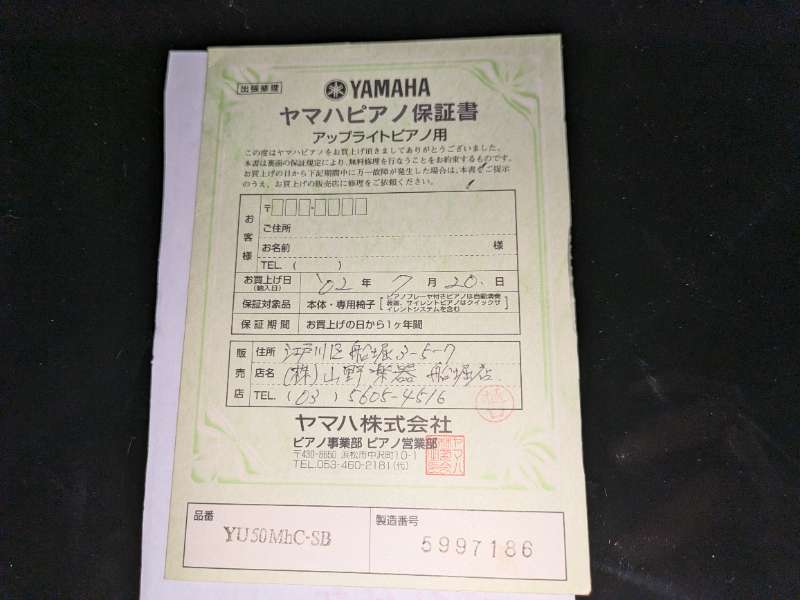 出張修理
YAMAHA
ヤマハピアノ保証書
アップライトピアノ用
この度はヤマハピアノをお買上げ頂きましてありがとうございました。
本書は裏面の保証規定により、無料修理を行なうことをお約束するものです。
お買上げの日から下記期間中に万一故障が発生した場合は、本書をご提示
のうえ、お買上げの販売店に修理をご依頼ください。
お客様
〒
ご住所
お名前 様
TEL ( )
お買上げ日 '02 年 7 月 20 日
(納入日)
保証対象品 本体・専用椅子 [ピアノプレーヤ付きピアノは自動演奏
装置、サイレントピアノはクイックサ
イレントシステムを含む]
保証期間 お買上げの日から1ヶ年間
販売店
住所 江戸川区船堀3-5-7
店名 (株)山野楽器 船堀店
TEL. (03) 5605-4516
ヤマハ株式会社
ピアノ事業部 ピアノ営業部
〒430-8650 浜松市中沢町10-1
TEL.053-460-2181(代)
品番 YU50MhC-SB
製造番号 5997186